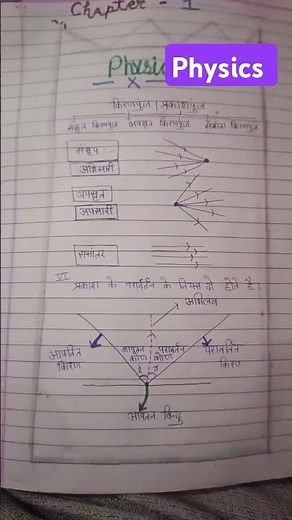 Chapter - 1
Physics
किरणपुंज | प्रकाशपुंज
संसृत किरणपुंज अपसृत किरणपुंज किरणपुंज
अभिसारी
अपसृत
अपसारी
समांतर
VI
प्रकाश के परावर्तन के नियम दो होते है।
अभिलंब
आपतित किरण
आपतन कोण
परावर्तन कोण
परावर्तित किरण
i r
आपतन बिन्दु